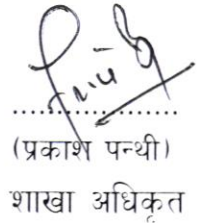 (प्रकाश पन्थी)
शाखा अधिकृत